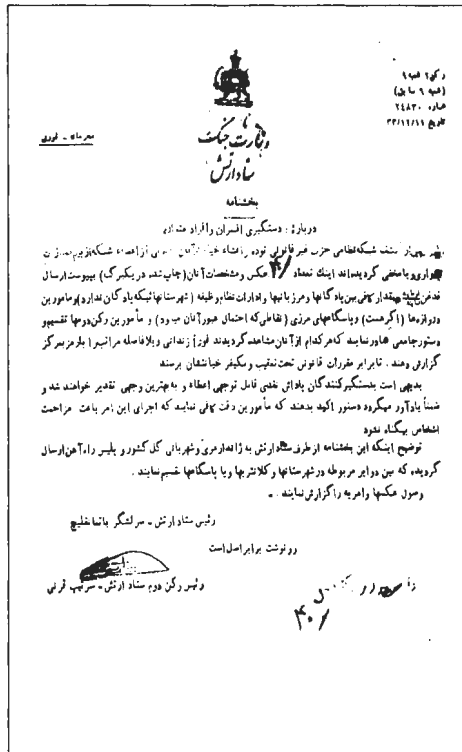 رکن ۲ شعبه ۹
(شعبه ۹ سابق)
شماره ۲۴۸۳۰
تاریخ ۳۳/۱۱/۱۱
محرمانه - فوری
وزارت جنگ
ستاد ارتش
بخشنامه
درباره: دستگیری افسران و افراد
کشف شبکه نظامی حزب غیر قانونی توده و افشاء از اعضاء شبکه
متواری یا مخفی گردیده‌اند اینک تعداد ۴۰ عکس و مشخصات آنان (چاپ شده در یکبرگ) بپیوست ارسال
بین پادگانها و مرزبانیها و ادارات نظام وظیفه (شهرستانهائیکه پادگان ندارد) و مامورین
دروازه‌ها (اگر هست) و پاسگاههای مرزی (نقاطی که احتمال عبور آنان میرود) و مأمورین رکن دومها تقسیم و
دستور جامعی صادر نمایند که هر کدام از آنان مشاهده گردیدند فوراً زندانی و بلافاصله مراتب را با رمز بمرکز
گزارش دهند. تا برابر مقررات قانونی تحت تعقیب و بکیفر خیانتشان برسند
بدیهی است بدستگیرکنندگان پاداش نقدی قابل توجهی اعطاء و به بهترین وجهی تقدیر خواهند شد و
ضمناً یادآور میگردد دستور اکید بدهند که مأمورین دقت کافی نمایند که اجرای این امر باعث مزاحمت
اشخاص بیگناه نشود
توضیح اینکه این بخشنامه از طرف ستاد ارتش به ژاندارمری و شهربانی کل کشور و پلیس راه آهن ارسال
گردیده که بین دوایر مربوطه در شهرستانها و کلانتریها و یا پاسگاهها تقسیم نمایند.
وصول عکسها و امریه را گزارش نمایند. -
رئیس ستاد ارتش - سرلشگر باتمانقلیچ
رونوشت برابر اصل است
رئیس رکن دوم ستاد ارتش - سرتیپ قرنی
۴۰